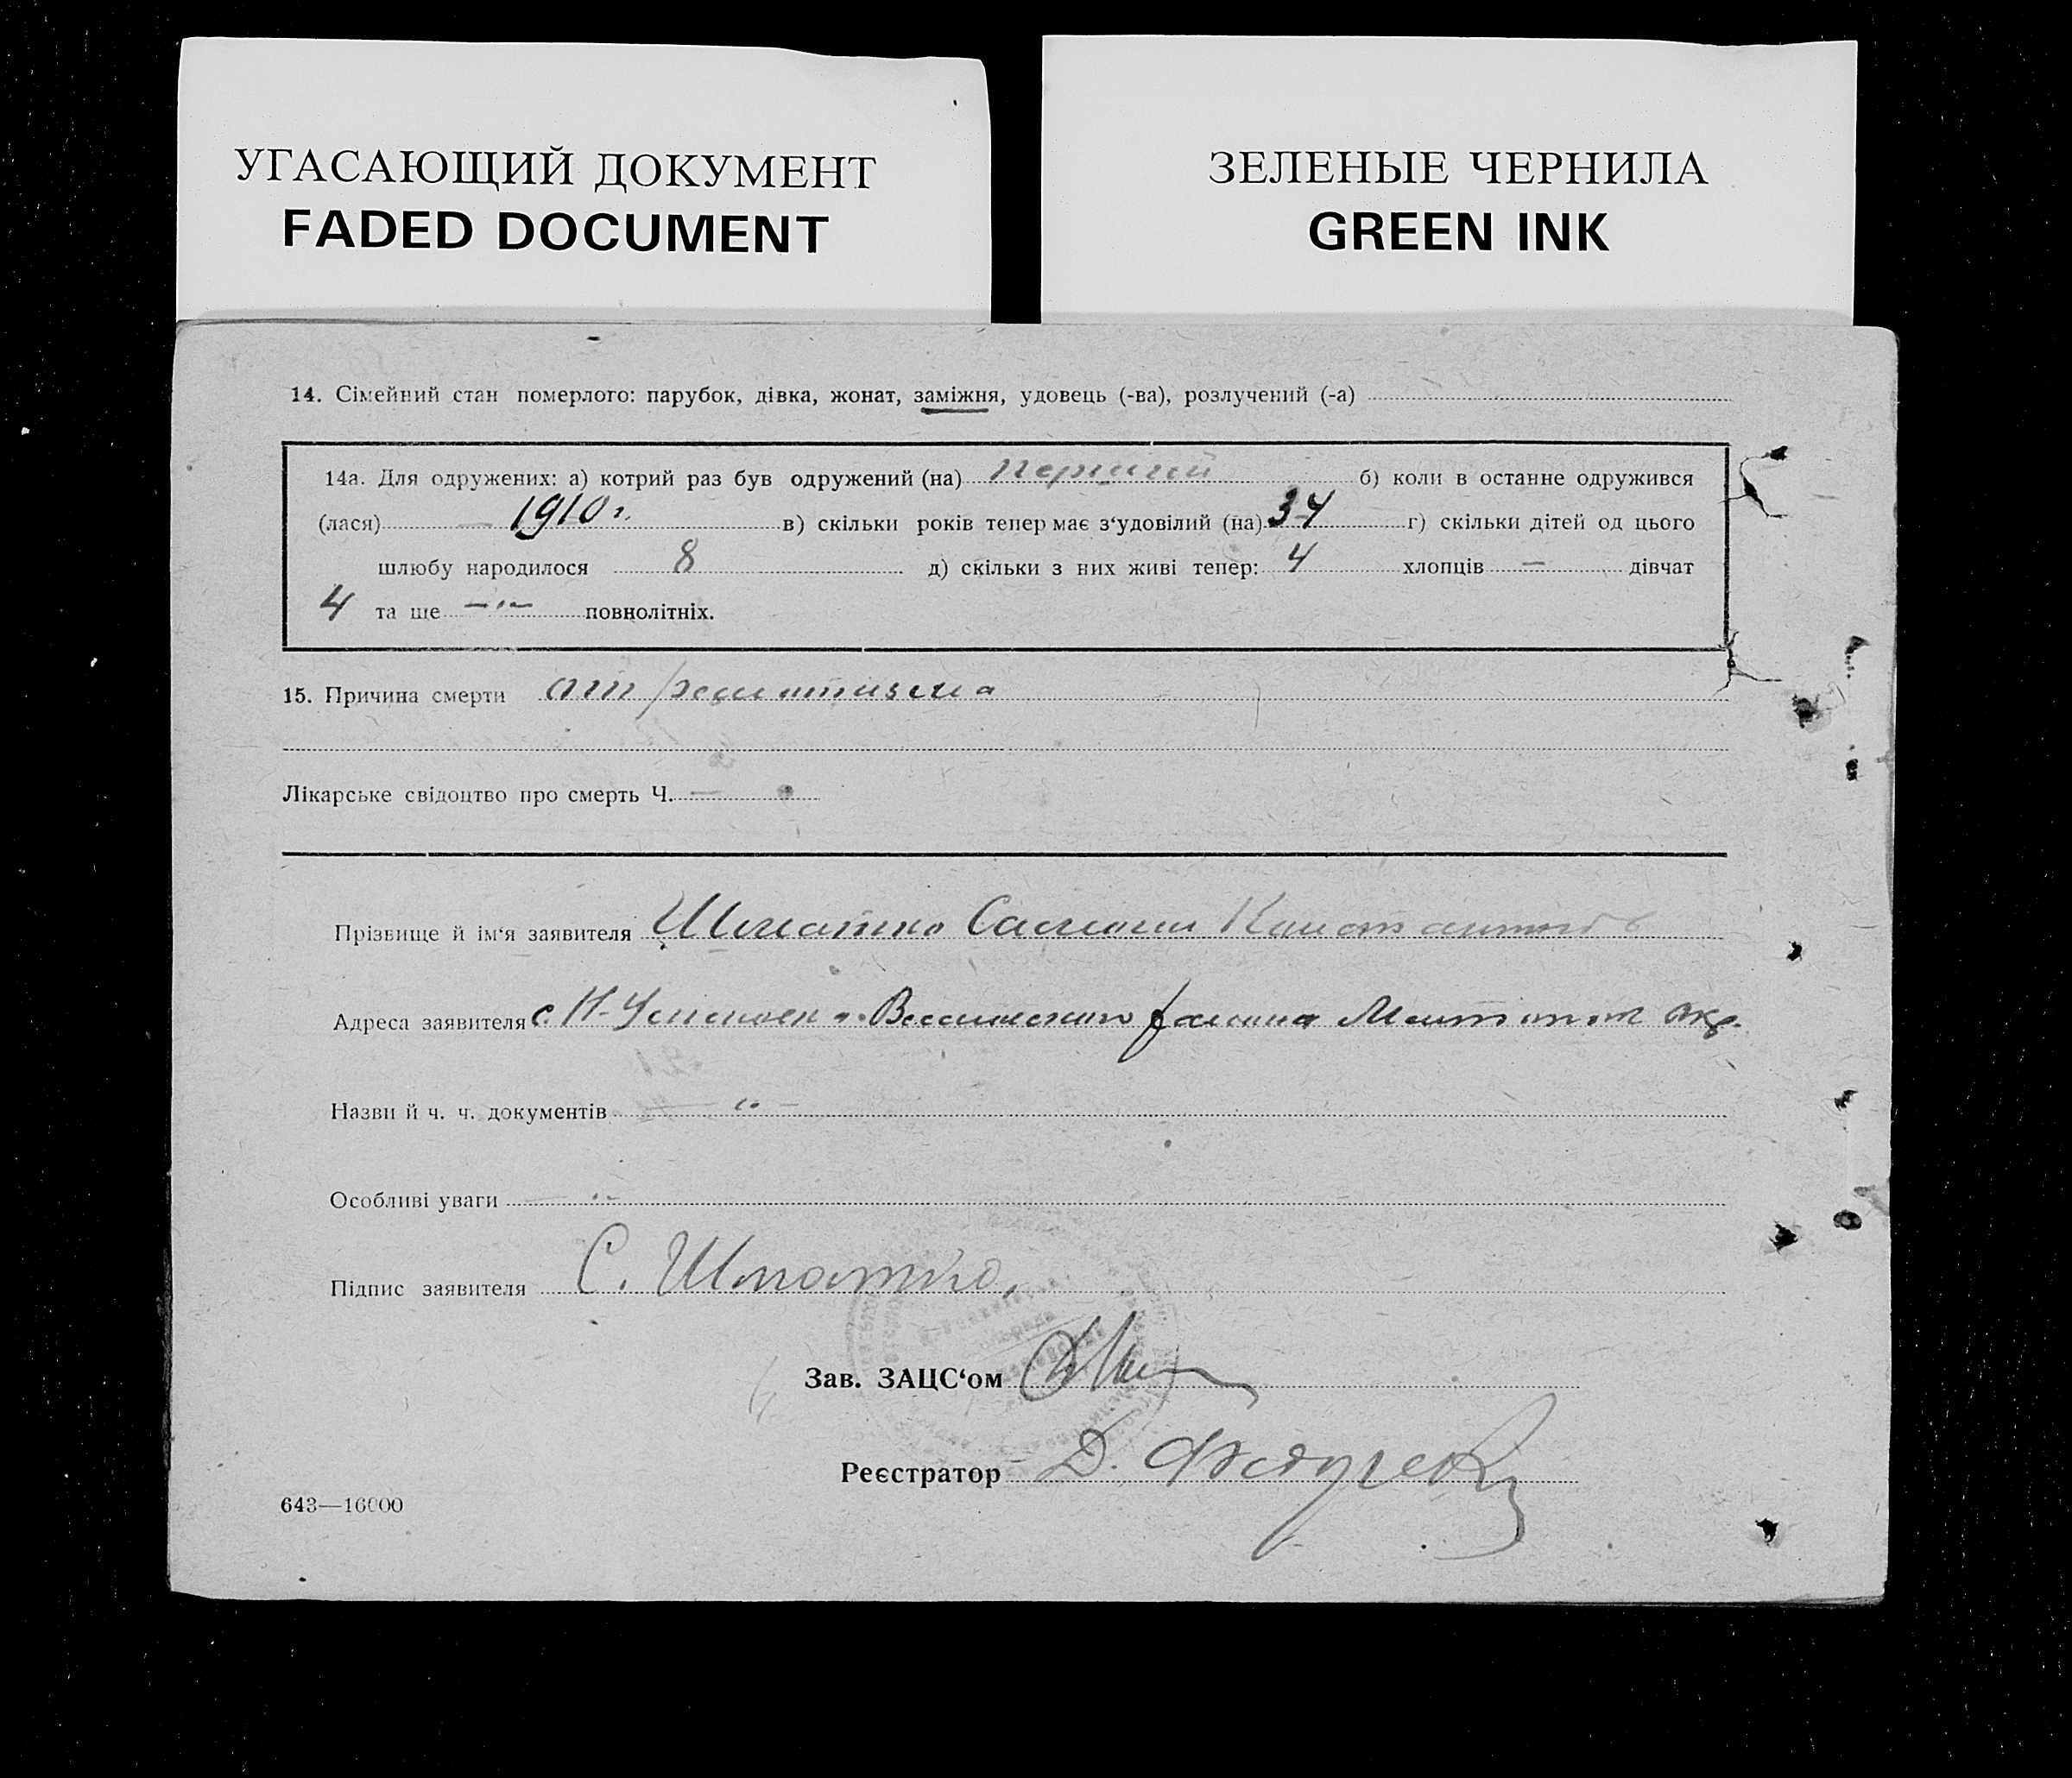 УГАСАЮЩИЙ ДОКУМЕНТ
FADED DOCUMENT
ЗЕЛЕНЫЕ ЧЕРНИЛА
GREEN INK
14. Сімейний стан померлого: парубок, дівка, жонат, заміжня, удовець (-ва), розлучений (-а)
14а. Для одружених: а) котрий раз був одружений (на) первий б) коли в останне одружився
(лася) 1910 г. в) скільки років тепер має з‘удовілий (на) 34 г) скільки дітей од цього
шлюбу народилося 8 д) скільки з них живі тепер: 4 хлопців — дівчат
4 та ще —"— повнолітніх.
15. Причина смерти от ревматизма
Лікарське свідоцтво про смерть Ч. —
Прізвище й ім‘я заявителя Шматко Самоил Константинов
Адреса заявителя с. Н-Успеновка Веселовского района Мелитоп окр.
Назви й ч. ч. документів — " —
Особливі уваги — " —
Підпис заявителя С. Шматко,
Зав. ЗАЦС‘ом
Реєстратор Д.
643—16000